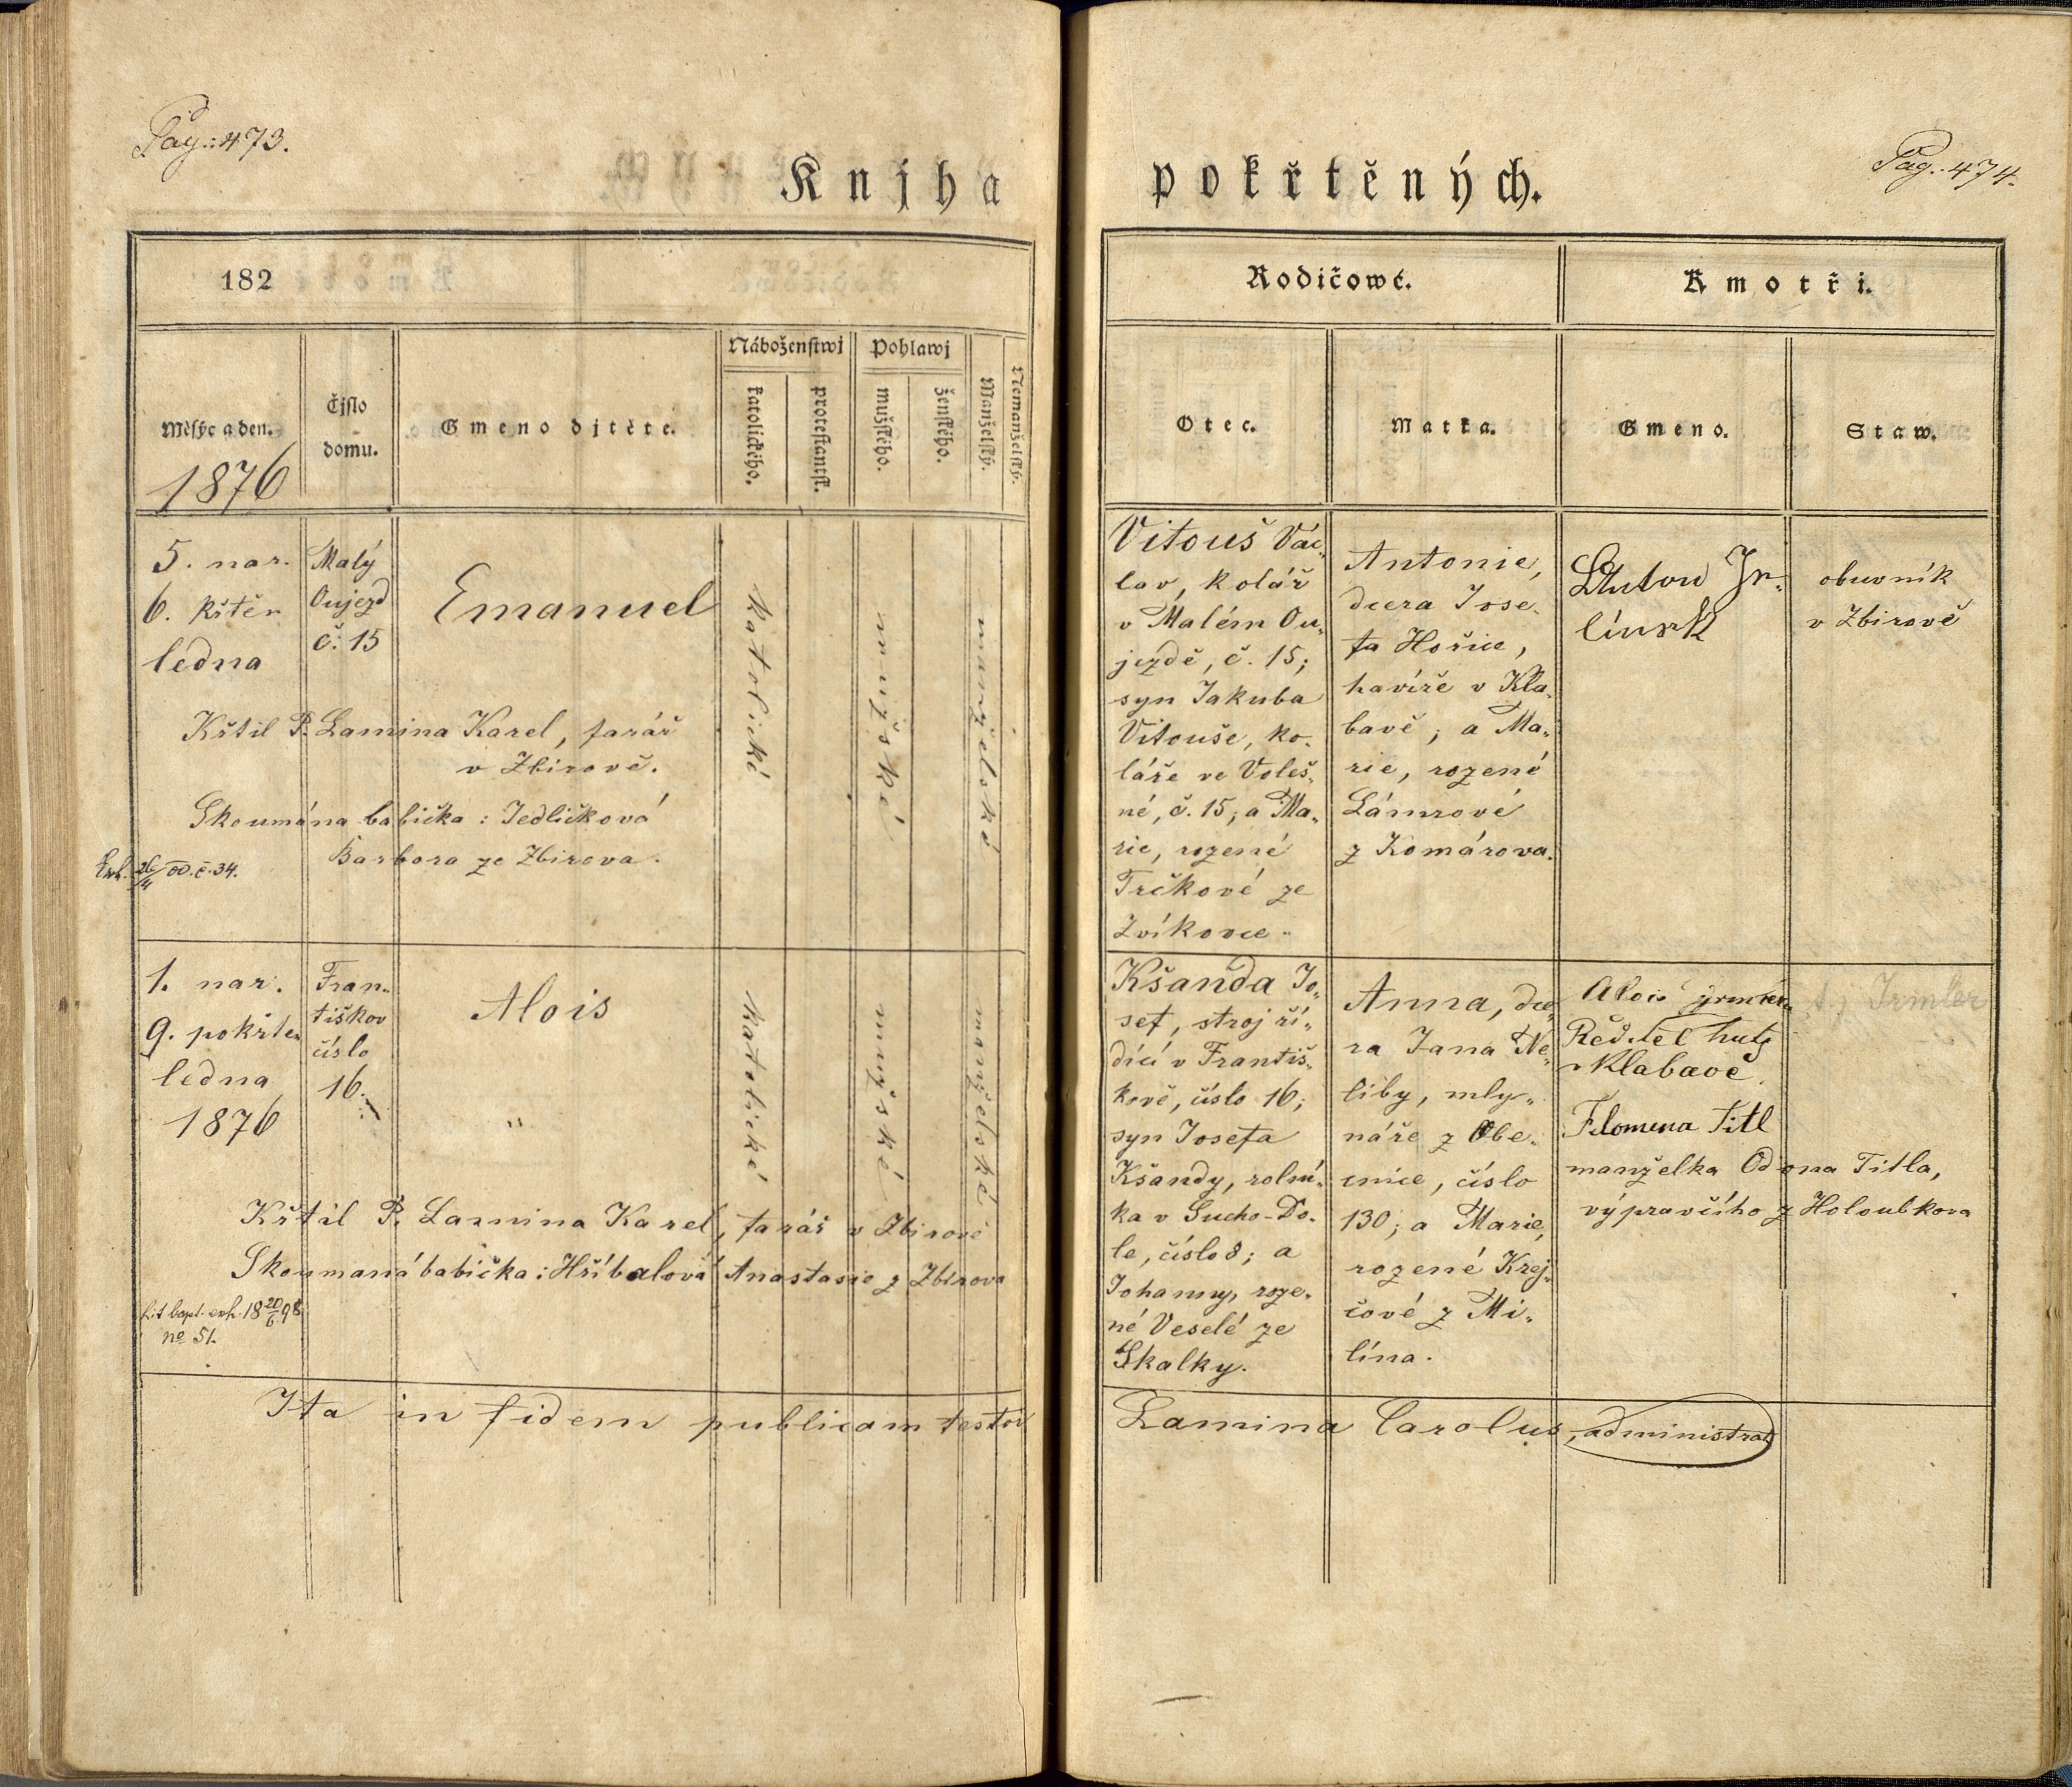 Pag: 473.
Knjha
182
Náboženstwj
Pohlawj
Měsýc a den.
1876
Čjslo
domu.
Gmeno djtěte.
katolického.
protestantst.
mužského.
ženského.
Manželský.
Nemanželský.
5. nar.
6. křtěn
ledna
Malý
Oujezd
č: 15
Emanuel
katolické
mužské
manželské
Křtil P. Lamina Karel, farář
v Zbirově.
Skoumána babička: Jedličková
Barbora ze Zbirova.
26/4 č. 34.
1. nar.
9. pokřten
ledna
1876
Fran„
tiškov
číslo
16.
Alois
"
katolické
mužské
manželské
Křtil P. Lamina Karel, farář v Zbirově
Skoumaná babička: Hříbalová Anastasie z Zbirova
Lit bapt. exh. 18 20/6 98
no 51.
Ita in fidem publicam testor
Pag. 474.
pokřtěných.
Rodičowé.
Kmotři.
Otec.
Matka.
Gmeno.
Staw.
Vitouš Vác„
lav, kolář
v Malém Ou„
jezdě, č. 15;
syn Jakuba
Vitouše, ko„
láře ve Voleš„
né, č. 15; a Ma„
rie, rozené
Trčkové ze
Zvíkovce.
Antonie,
dcera Jose„
fa Hořice,
havíře v Kla„
bavě; a Ma„
rie, rozené
Lámrové
z Komárova.
Anton Jr„
línsk
obuvník
v Zbirově
Kšanda Jo„
sef, stroj ří„
dící v Františ„
kově, číslo 16;
syn Josefa
Kšandy, rolní„
ka v Sucho-Do„
le, číslo 8; a
Johanny, roze„
né Veselé ze
Skalky.
Anna, dce„
ra Jana Ne„
liby, mly„
náře z Obe„
cnice, číslo
130; a Marie,
rozené Krej„
čové z Mi„
lína.
Alois Irmler
Ředitel hutě
v Klabavě
Filomena Titl
manželka Odona Titla,
výpravčího z Holoubkova
Irmler
Lamina Carolus, administrat